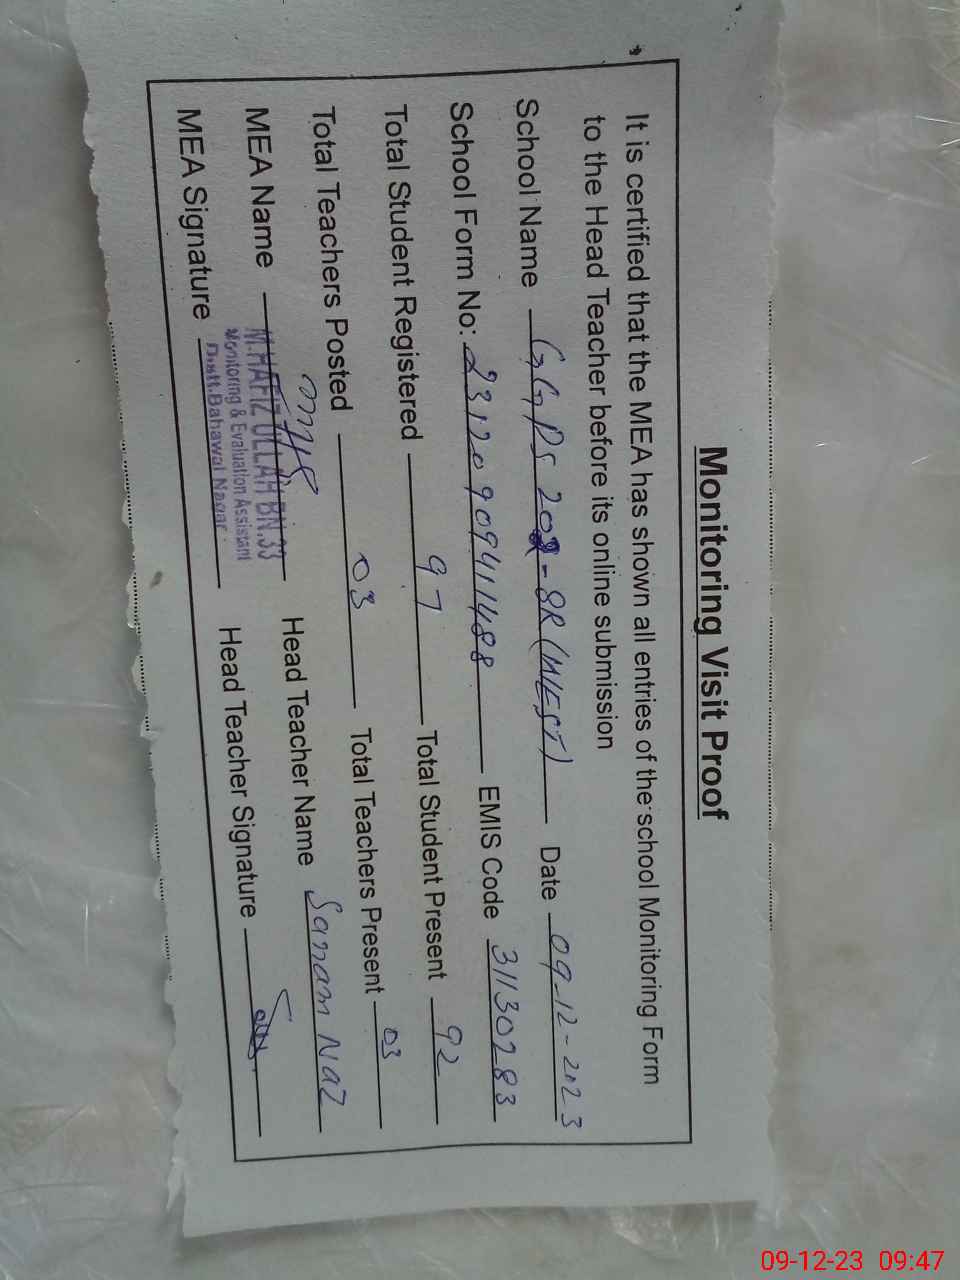 Monitoring Visit Proof
It is certified that the MEA has shown all entries of the school Monitoring Form
to the Head Teacher before its online submission
School Name GGPS 202-8R (WEST) Date 09-12-2023
School Form No: 23120909411488 EMIS Code 31130283
Total Student Registered 97 Total Student Present 92
Total Teachers Posted 03 Total Teachers Present 03
MEA Name M.HAFIZ ULLAH BN.33 Head Teacher Name Sanam Naz
Monitoring & Evaluation Assistant
Distt.Bahawal Nagar
MEA Signature Head Teacher Signature
09-12-23 09:47